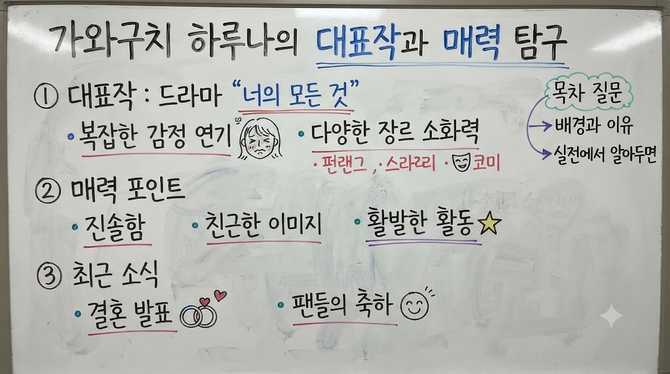 가와구치 하루나의 대표작과 매력 탐구
① 대표작 : 드라마 “너의 모든 것”
• 복잡한 감정 연기
• 다양한 장르 소화력
• 펀랜그, • 스라리리 • 코미
목차 질문
→ 배경과 이유
→ 실전에서 알아두면
② 매력 포인트
• 진솔함 • 친근한 이미지 • 활발한 활동
③ 최근 소식
• 결혼 발표 • 팬들의 축하